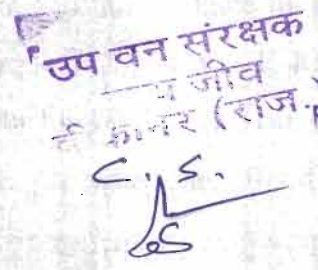 उप वन संरक्षक
जीव
(राज.)
C. S.